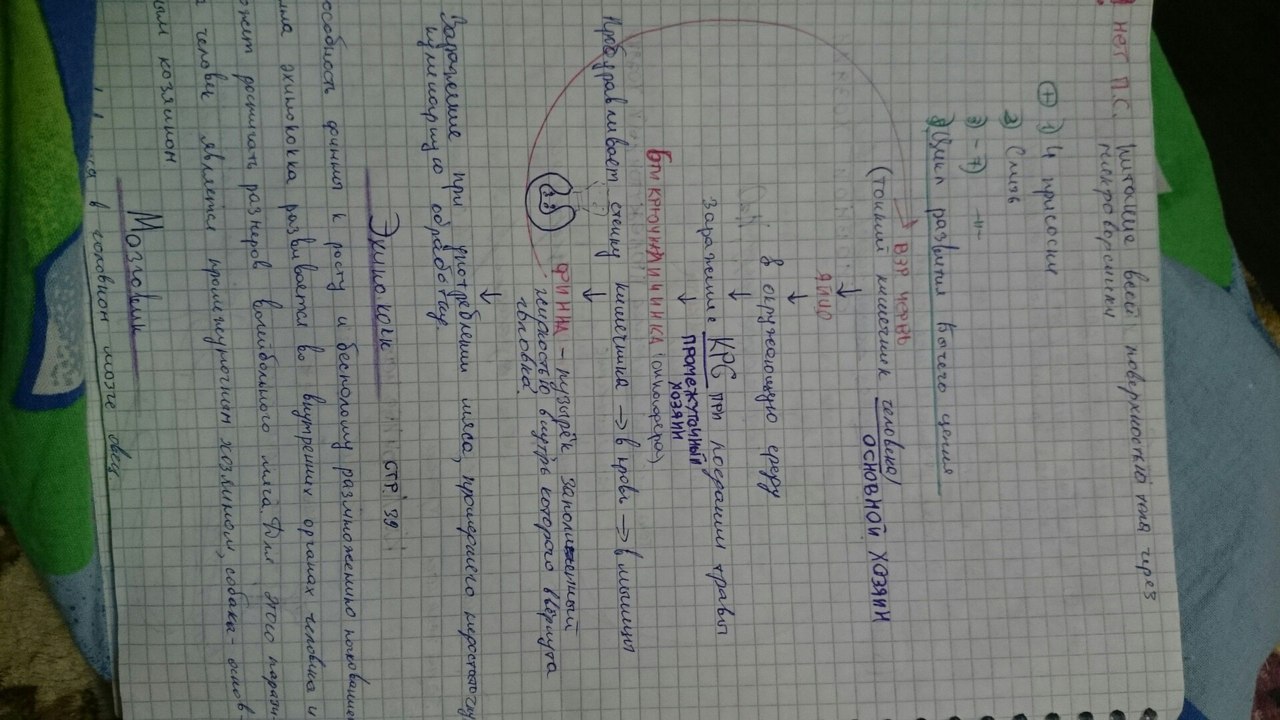 нет П.С. питание всей поверхностью тела через
микроворсинки
+ 1) 4 присоски
2) Смыв
3) - 7) -"-
8) Цикл развития бычего цепня
ВЗР ЧЕРВЬ
(тонкий кишечник человека)
ОСНОВНОЙ ХОЗЯИН
↓
ЯЙЦО
↓
в окружающую среду
↓
Заражение КРС ПРИ поедании травы
↓ ПРОМЕЖУТОЧНЫЙ
ХОЗЯИН
6ТИ КРЮЧНАЯ ЛИЧИНКА (онкосфера)
Пробуравливает стенку кишечника → в кровь → в мышцы
↓
ФИННА - пузырёк заполненный
жидкостью внутрь которого ввернута
головка
↓
Заражение при употреблении мяса, прошедшего недостаточную
кулинарную обработку
Эхинококк СТР 39
особность финны к росту и бесполому размножению почкованием
эхинококка развивается во внутренних органах человека и
ожет достигать размеров волейбольного мяча. Для этого парази
человек является промежуточным хозяином, собака - основ-
ым хозяином
Мозговик
в головном мозге овец